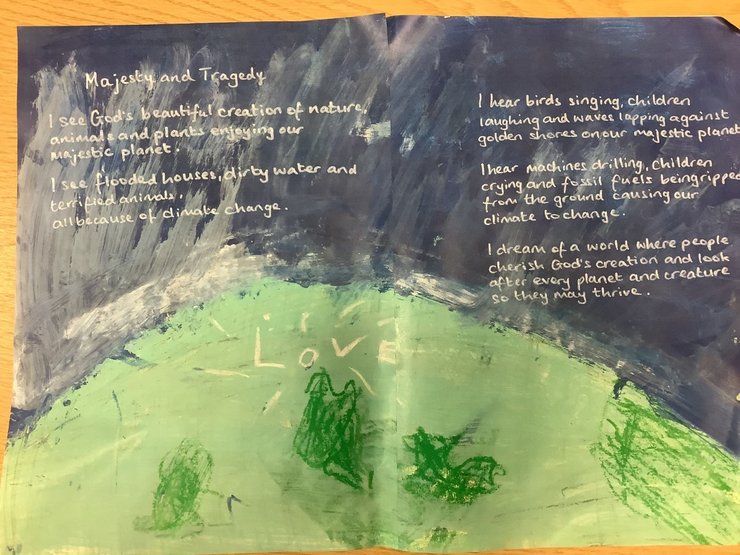 Majesty and Tragedy
I see God's beautiful creation of nature,
animals and plants enjoying our
majestic planet.
I see flooded houses, dirty water and
terrified animals,
all because of climate change.
I hear birds singing, children
laughing and waves lapping against
golden shores on our majestic planet
I hear machines drilling, children
crying and fossil fuels being ripped
from the ground causing our
climate to change.
I dream of a world where people
cherish God's creation and look
after every planet and creature
so they may thrive.
LOVE